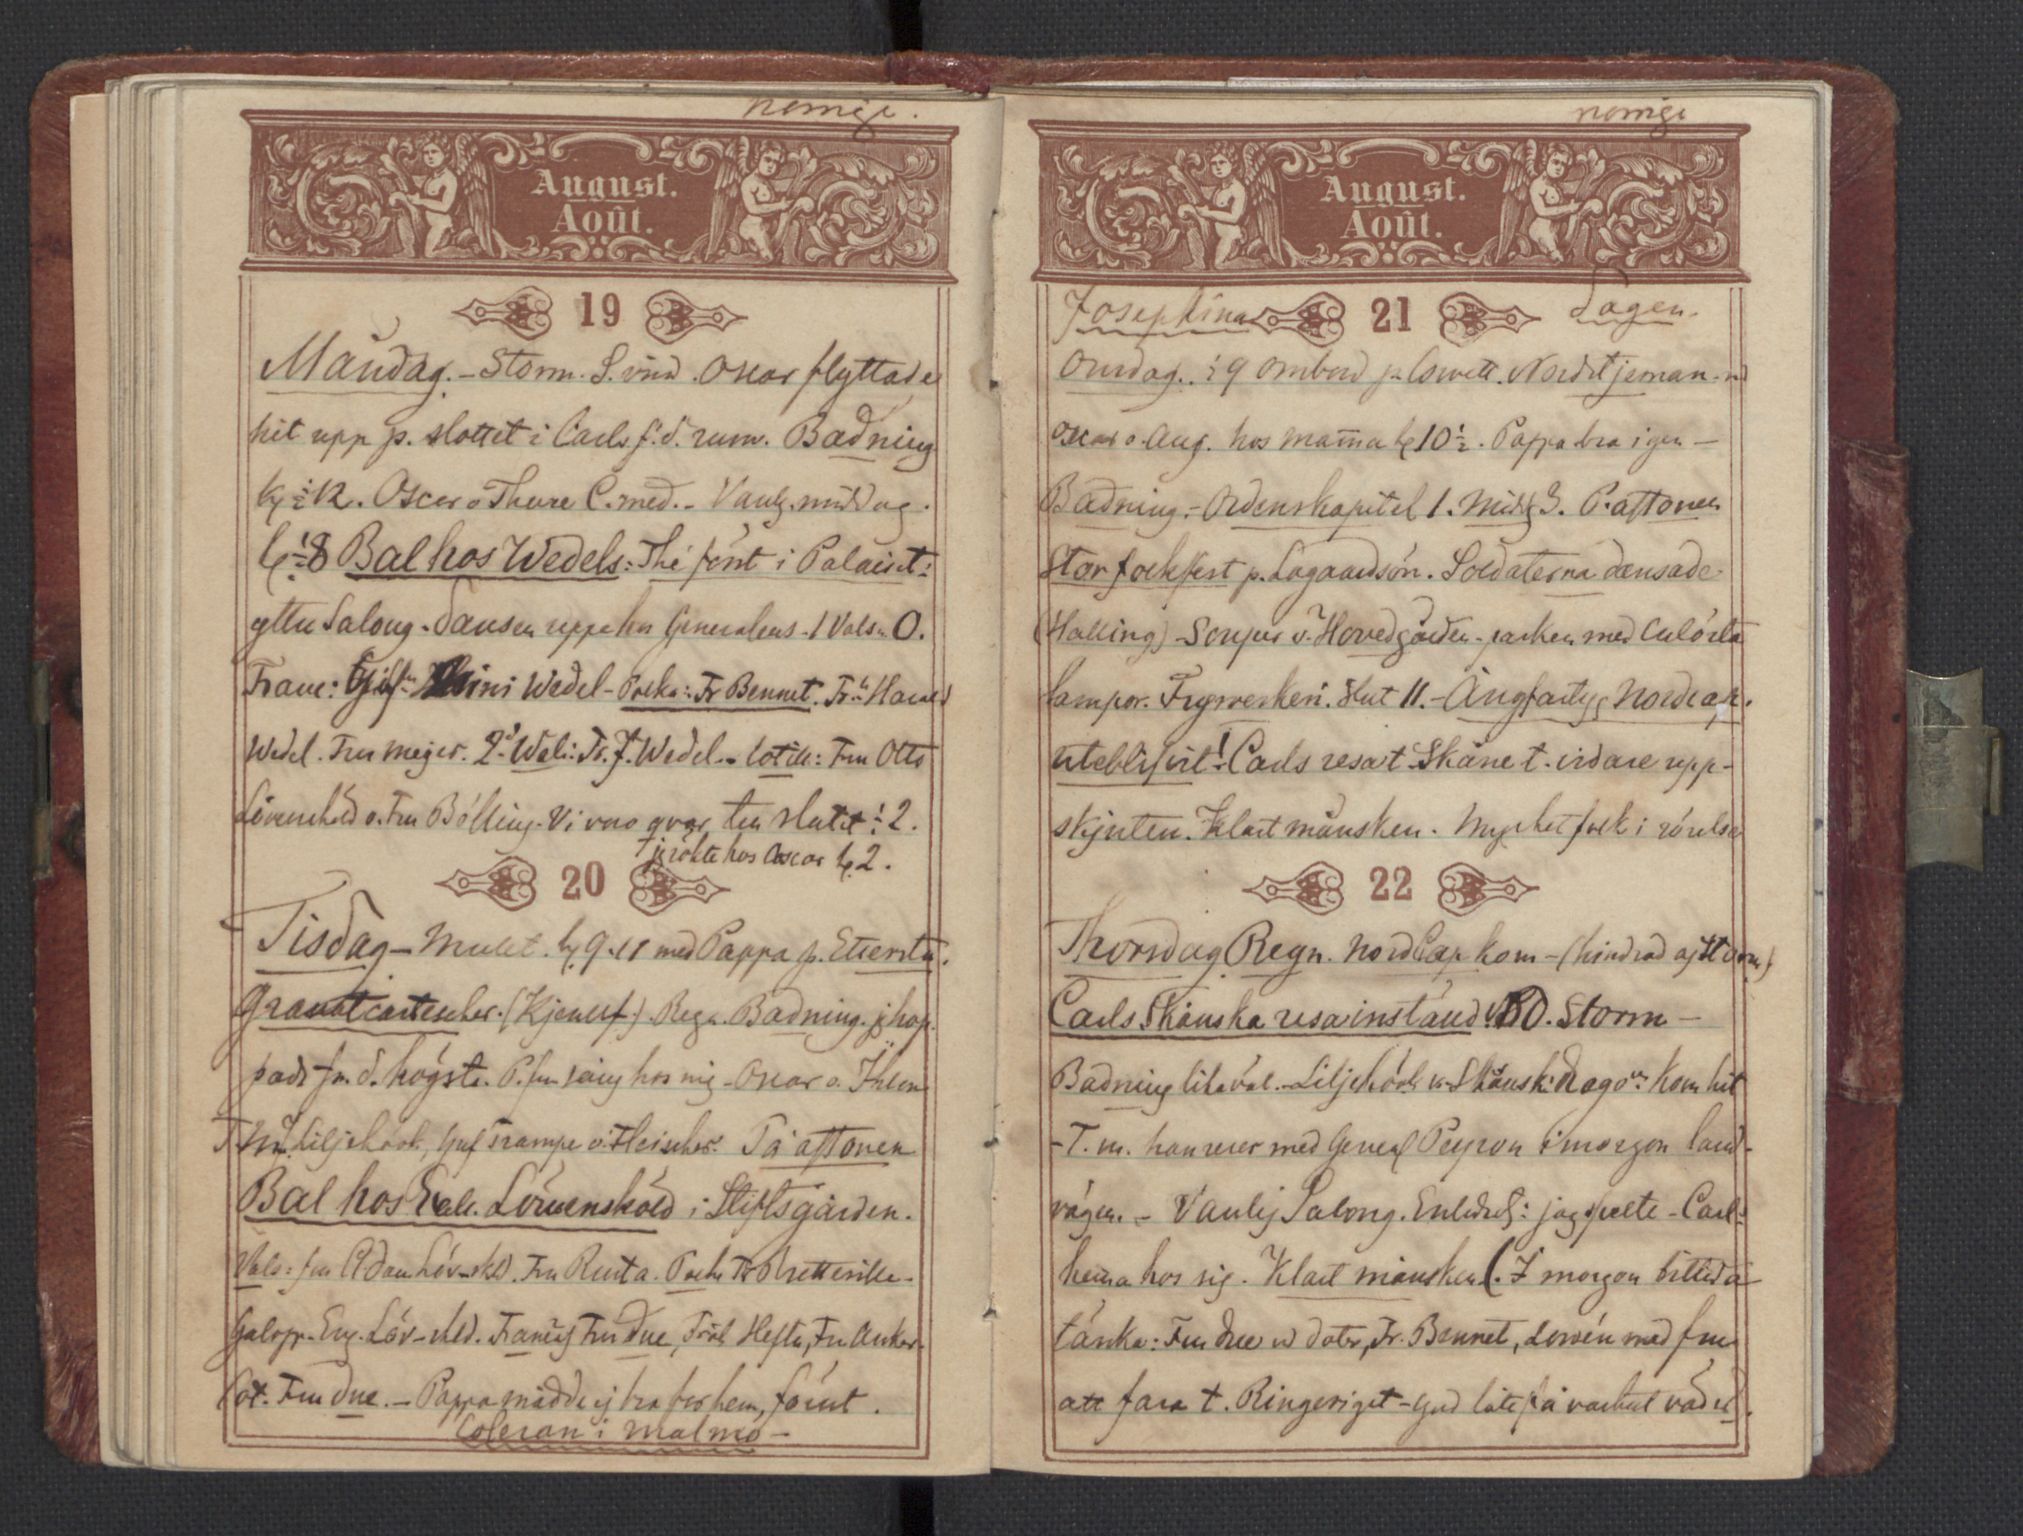 norrige.
August.
Août.
19
Måndag. – Storm. S. vind. Oscar flyttade
hit upp p. slottet i Carls f. d. rum. Badning
kl ½ 12. Oscar o Thure C. med. – Vanlg. middag.
kl ½ 8 Bal hos Wedels: Thé först i Palaiet:
yttre Salong. Dansen uppe hos Generalens. 1 Vals: O.
Franc: Wedel – Polka: Fr Bennet. Frkn Harald
Wedel. Fru Meyer. 2d Vals: Fr. J. Wedel. – Cotill: Fru Otto
Lövenskold o. Fru Bölling. Vi voro qvar till slutet ½ 2.
jg rökte hos Oscar kl 2.
20
Tisdag – Mulet. kl. 9-11 med Pappa p. Etterstad.
Granatcartescher. (Kjerulf.) Regn. Badning. jg hop-
pade fr. d. högsta. P. fru sång hos mig – Oscar o. Ihlen
T. M. Liljehöök, Gref Trampe o. Fleischer. På aftonen
Bal hos Löwensköld i Stiftsgården.
Vals: fru Löv-skld. Fru Rusta. Polka Fr Bretteville.
Galopp. Eug. Löv-skld. Françs Fru Due, Frök Heftye, Fr Anker.
Cot. Fru Due. – Pappa mådde ej bra for hem, förut.
Coleran i Malmö –
norrige
August.
Août.
Josephina
21
Dagen.
Onsdag. ½ 9 ombord p. Corvett. Nordstjernan
Oscar o. Aug. hos Mamma kl 10 ½. Pappa bra igen –
Badning. – Ordenskapitel 1. Middg 3. P. aftonen
Stor folkfest p. Lagaardsön. Soldaterna dansade
(Halling) – Souper v. Hovedgården – parken med culörta
lampor. Fyrverkeri. Slut 11. – Ångfartyg Nordcap.
uteblifvit! Carls resa t. Skåne t. vidare upp-
skjuten. Klart månsken. Mycket folk i rörelse
22
Thorsdag Regn. NordCap kom – (hindrad af storm)
Carls Skånska resa inställd. O. Storm –
Badning likaväl. – Liljehöök v. Skånsk: Dragon: kom hit
– T. m. han reser med General Peyron i morgon land-
vägen. – Vanlig Salong. Enledigt: jag spelte – Carl
hema hos sig. Klart månsken (. I morgon bittida
tänka: Fru Due o doter, Fr. Bennet, Lovén med fru
att fara t. Ringeriget – Gud låte få vackert väder.